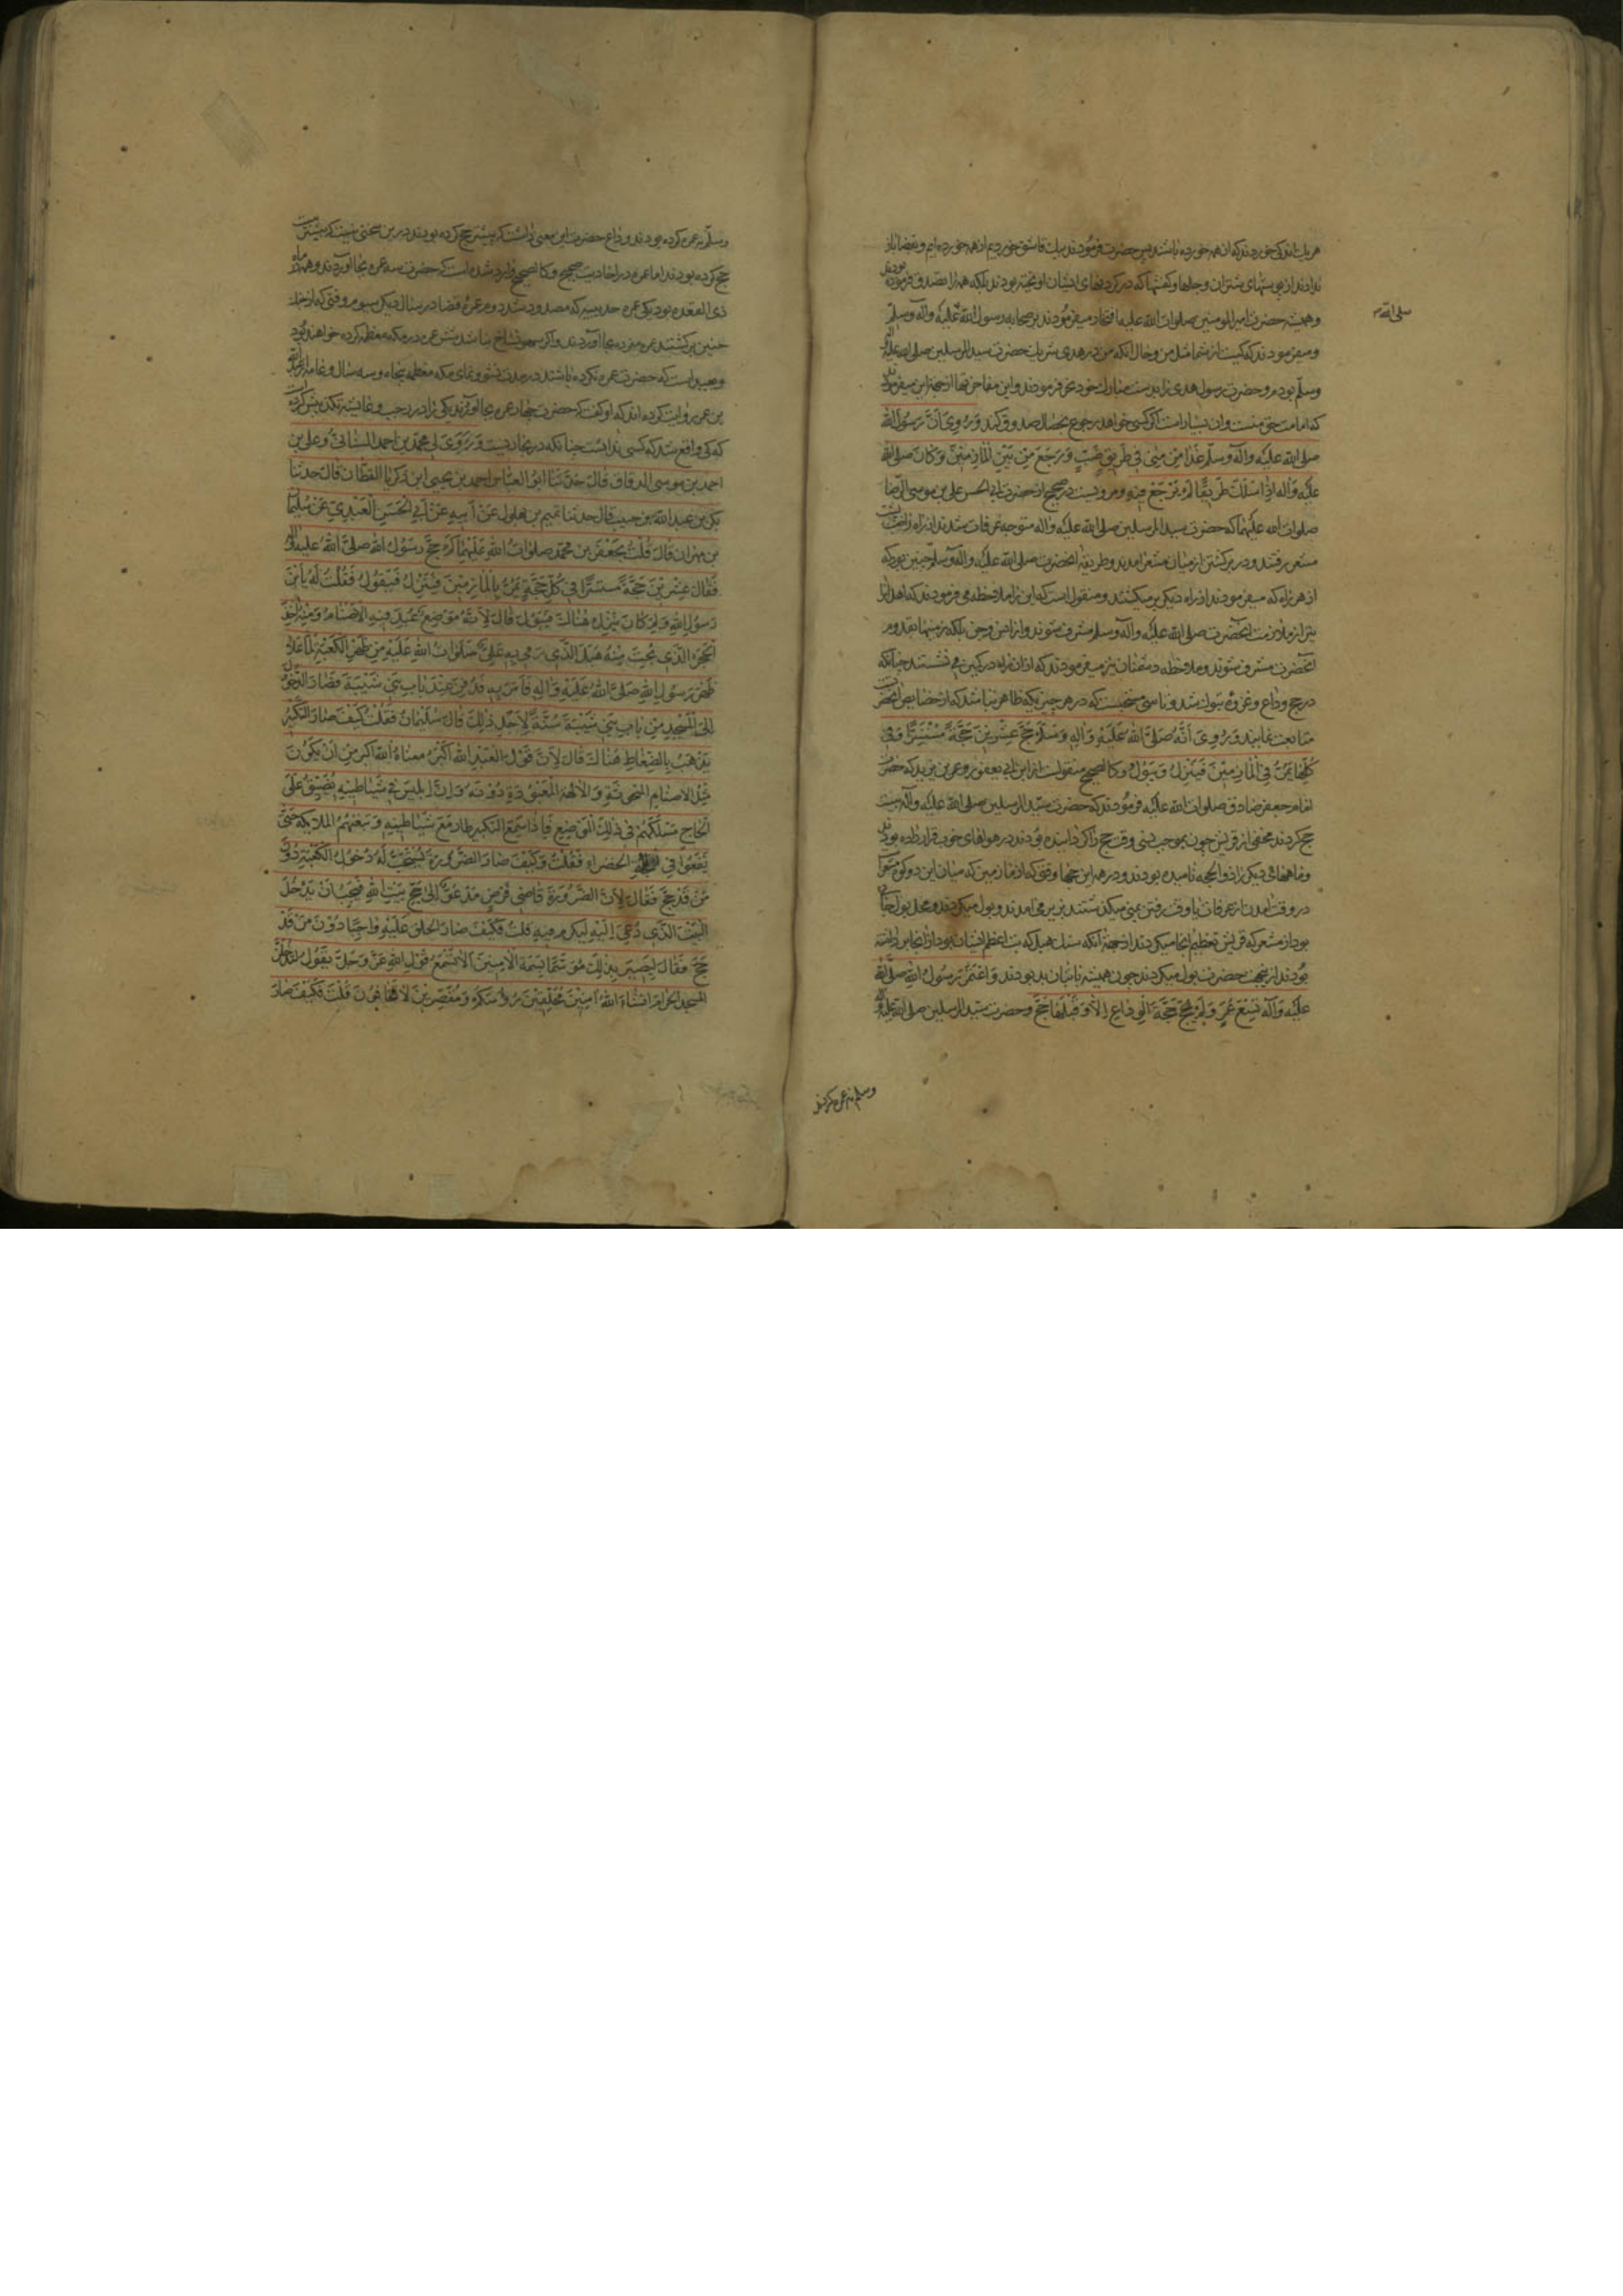 هر یک اندکی خوردند که از همه خورده باشند پس حضرت فرمودند یک قاشق خوردیم از همه خورده ایم و بقصابان
ندادند از پوستهای شتران و جلها و کفشها که در گردنهای ایشان اویخته بودند بلکه همه را تصدق فرموده بودند
و همیشه حضرت امیر المومنین صلوات الله علیه افتخار میفرمودند بر صحابه رسول الله علیه وآله وسلم
صلی الله
و میفرمودند که کیست از شما مثل من و حال انکه من در هدی شریک حضرت سید المرسلین صلی الله علیه وآله
وسلم بودم و حضرت رسول هدی را بدست مبارک خود نحر فرمودند و این مفاخرتها از جهة این میفرمودند
که امامت حق منست وان بسیار است اگر کسی خواهد رجوع بخصال صدوق کند وَرُوِیَ أَنَّ رَسُولَ الله
صلی الله علیه وآله وسلم غَدَا مِنْ مِنًی فِی طَرِیقِ ضَبٍّ وَرَجَعَ مِنْ بَیْنِ الْمَأْزِمَیْنِ وَکَانَ صلی الله
علیه وَآله اِذَا سَلَكَ طَرِیقًا لَمْ یَرْجِعْ فِیهِ و مرویست در صحیح از حضرت ابی الحسن علی بن موسی الرضا
صلوات الله علیهما که حضرت سید المرسلین صلی الله علیه واله متوجه عرفات شدند از راه
مشعر رفتند و در برکشتن از میان مشعر امدند و طریقۀ انحضرت صلی الله علیه وآله وسلم چنین بود که
از هر راه که میفرمودند از راه دیکر بر میکشتند و منقول است که این را ملاحظه می فرمودند که اهل آنراه
نیز از ملازمت انحضرت صلی الله علیه وآله وسلم مشرف شوند و از انس و جن بلکه زمینها بقدوم
انحضرت مشرف شوند و ملاحظه دشمنان نیز میفرمودند که از ان راه در کمین می نشستند چنانکه
در حج وداع و غزوۀ تبوک شد و تاسی مستحبست که در هر چیزیکه ظاهر نباشد که از خصایص انحضرتست
متابعت نمایند وَرُوِیَ أَنَّهُ صَلَّی الله عَلَیْهِ وَآلِهِ وَسَلَّمَ حَجَّ عِشْرِینَ حَجَّةً مُسْتَسِرًّا وَفِی
کُلِّهَا یَمُرُّ فِی الْمَأْزِمَیْنِ فَیَنْزِلُ وَیَبُولُ و کالصحیح منقولست از ابن ابی یعفور و عمر بن یزید که حضرت
امام جعفر صادق صلوات الله علیه فرمودند که حضرت سید المرسلین صلی الله علیه وآله بیست
حج کردند مخفی از قریش چون بموجب نسی وقت حج را گردانیده بودند در هواهای خوب قرار داده بودند
و ماههای دیکر را ذوالحجه نامیده بودند و در همه این حجها وقتی که از مازمین که میان این دو کوه مشعر است
در وقت امدن از عرفات یا وقت رفتن بمنی میکذشتند بزیر می امدند و بول میکردند و محل بول جایی
بود از مشعر که قریش تعظیم انجا میکردند از جهة آنکه سنک هبل که بت اعظم ایشان بود از انجا برداشته
بودند از این جهت حضرت بول میکردند چون همیشه با بتان بد بودند وَاعْتَمَرَ رَسُولُ اللهِ صَلَّی الله
علیه وَآله تِسْعَ عُمَرٍ وَلَمْ یَحُجَّ حَجَّةَ الْوِدَاعِ اِلَّا وَقَبْلَهَا حَجَّ و حضرت سید المرسلین صلی الله علیه وآله
وسلم نه عمره کردند
وسلم نه عمره کرده بودند و وداع حضرت این معنی داشت که پیشتر حج کرده بودند درین سخنی نیست که پیشتر بیست
حج کرده بودند اما عمره در احادیث صحیح و کالصحیح وارد شده است که حضرت سه عمره بجا آوردند و همه در ماه
ذی القعده بود یکی عمره حدیبیه که مصدود شد دوم عمرۀ قضا در سال دیکر سیوم وقتی که از جنک
حنین برکشتند عمره مفرده بجا آوردند و اکر سهو نساخ نباشد شش عمره در مکه معظمه کرده خواهند بود
و بعید است که حضرت عمره نکرده باشند در مدت نشو و نمای مکه معظمه پنجاه و سه سال و عامه از عبدالله
بن عمر روایت کرده اند که او کفت که حضرت چهار عمره بجا آوردند یکی را در رجب و عایشه تکذیبش کرده است
که کی واقع شد که کسی ندانست چنانکه در بخاریست وَرَوَی لِی محمد بن احمد السنانیُّ وعلی بن
احمد بن موسی الدقاق قَالَ حَدَّثَنَا ابوُ العباس احمد بن یحیی ابن زکریا القطان قالَ حدثنا
بکر بن عبد الله بن حبیب قال حدثنا تمیم بن بهلول عَنْ اَبیهِ عَنْ اَبِی الْحَسَنِ الْعَبْدِیِّ عَنْ سُلیمان
بن مهران قَالَ قُلْتُ لِجَعْفَرِ بن محمّد صلوات الله علیهما کَمْ حَجَّ رَسُولُ الله صلی الله علیه وآله
فَقَالَ عِشْرِینَ حَجَّةً مستترًا فِی کُلِّ حَجَّةٍ یَمُرُّ بِالْمَأْزِمَیْنِ فَیَنْزِلُ فَیَبُولُ فَقُلْتُ لَهُ یَا ابْنَ
رَسُولِ اللهِ وَلِمَ کَانَ یَنْزِلُ هُنَاكَ فَیَبُولُ قَالَ لِاَنَّهُ مَوْضِعٌ عُبِدَ فِیهِ الاصْنَامُ وَمِنْهُ اُخِذَ
الْحَجَرُ الَّذِی نُحِتَ مِنْهُ هُبَلُ الَّذِی رَمَی بِهِ عَلِیٌّ صَلَوَاتُ اللهِ عَلَیْهِ مِنْ ظَهْرِ الْکَعْبَةِ لَمَّا عَلَا
ظَهْرَ رَسُولِ اللهِ صَلَّی اللهُ عَلَیْهِ وَآلِهِ فَاَمَرَ بِهِ فَدُفِنَ عِنْدَ بَابِ بَنِی شَیْبَةَ فَصَارَ الدُّخُولُ
اِلَی الْمَسْجِدِ مِنْ بَابِ بَنِی شَیْبَةَ سُنَّةً لِاَجْلِ ذٰلِكَ قَالَ سُلَیْمَانُ فَقُلْتُ کَیْفَ صَارَ التَّکْبِیرُ
یَذْهَبُ بِالضِّغَاطِ هُنَاكَ قَالَ لِاَنَّ قَوْلَ الْعَبْدِ الله اَکْبَرُ مَعْنَاهُ الله اکبر مِنْ اَنْ یَکُونَ
مِثْلَ الاصنامِ المنحوتَةِ وَالآلِهَةِ الْمَعْبُودَةِ دُونَهُ وَاِنَّ اِبلیسَ فِی شَیَاطِینِهِ یُضَیِّقُ عَلَی
الْحَاجِّ مَسْلَکَهُمْ فِی ذٰلِكَ الْمَوْضِعِ فَاِذَا سَمِعَ التکبیر طار مَعَ شَیَاطِینِهِ وَتَبِعَتْهُمُ الملائکه حَتَّی
یَقَعُوا فِی الخضراء فَقُلْتُ وَکَیْفَ صَارَ الصَّرُورَةُ یُسْتَحَبُّ لَهُ دُخُولُ الْکَعْبَةِ دُونَ
مَنْ قَدْ حَجَّ فَقَالَ لِاَنَّ الصَّرُورَةَ قَاضِی فَرْضٍ مَدْعُوٌّ اِلَی حَجِّ بَیْتِ اللهِ فَیَجِبُ اَنْ یَدْخُلَ
الْبَیْتَ الَّذِی دُعِیَ اِلَیْهِ لِیُکْرَمَ فِیهِ قُلْتُ فَکَیْفَ صَارَ الحلق عَلَیْهِ وَاجِبًا دُونَ مَنْ قَدْ
حَجَّ فَقَالَ لِیَصِیرَ بِذٰلِكَ مُوَسَّمًا بِسِمَةِ الْآمِنِینَ اَلَا تَسْمَعُ قَوْلَ اللهِ عَزَّ وَجَلَّ یَقُولُ لَتَدْخُلُنَّ
المسجد الحرام ان شاء الله آمِنِینَ مُحَلِّقِینَ رُءُوسَکُمْ وَمُقَصِّرِینَ لَا تَخَافُونَ قُلْتُ فَکَیْفَ صَارَ